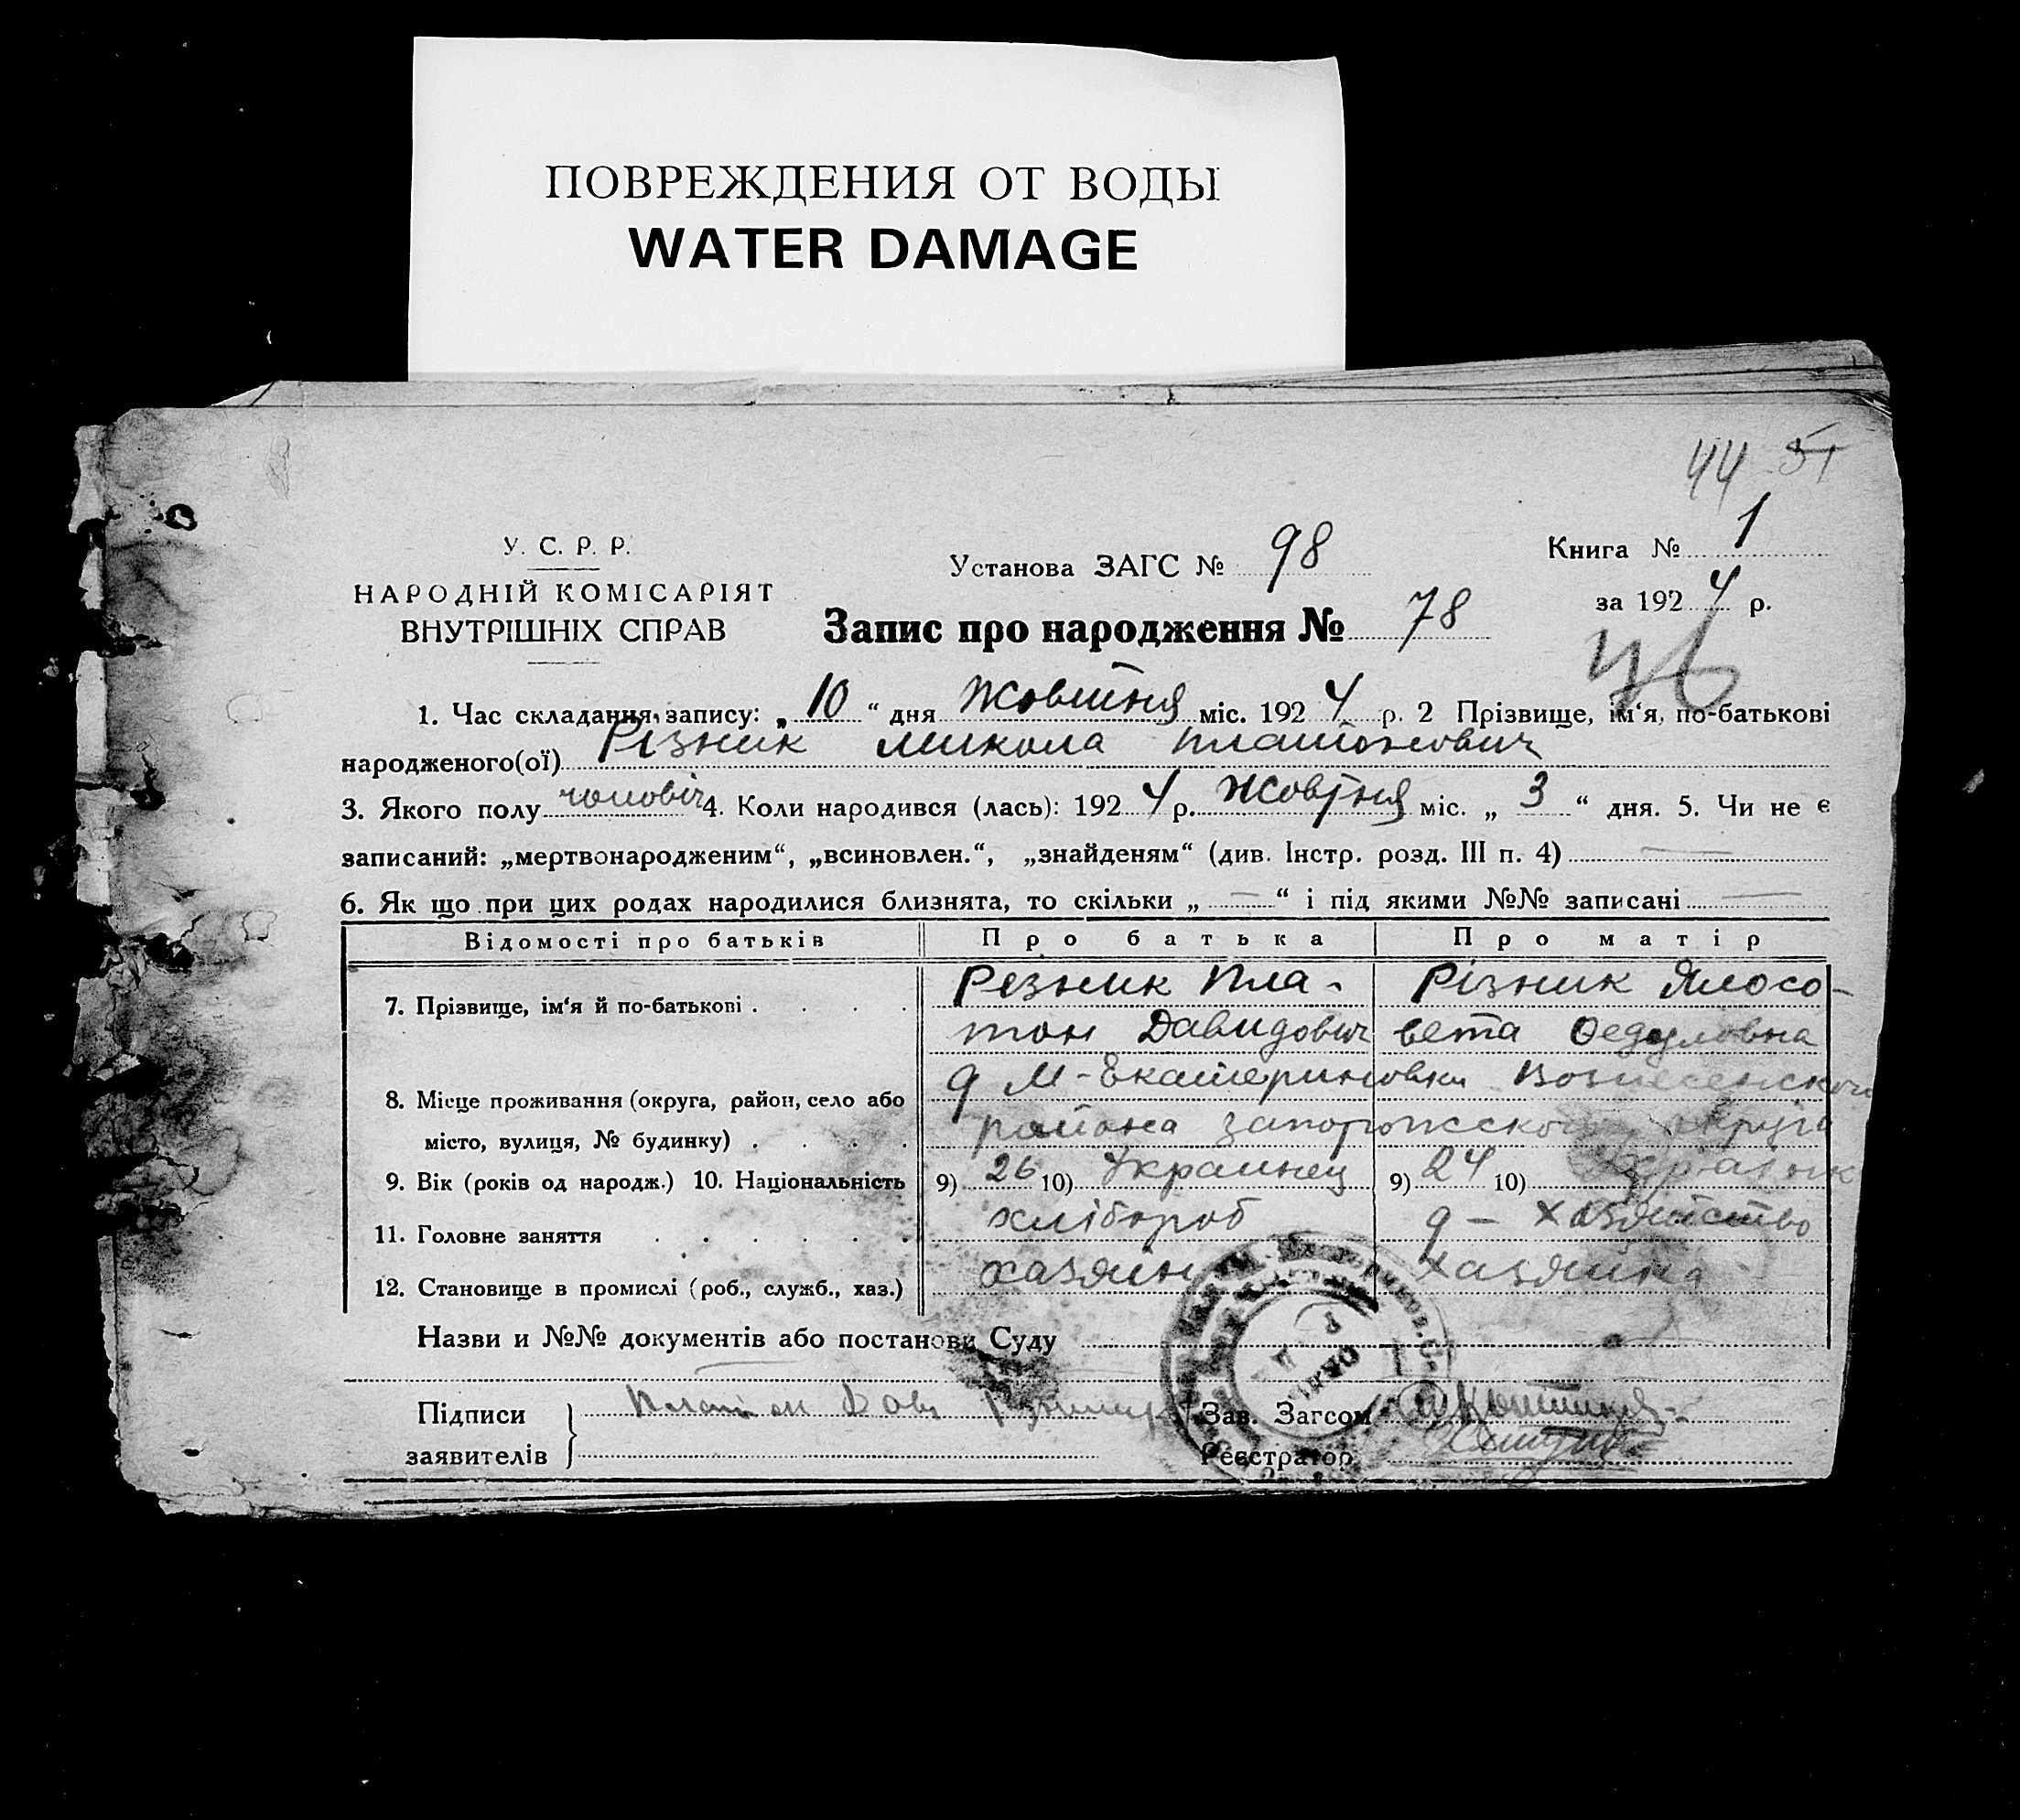 ПОВРЕЖДЕНИЯ ОТ ВОДЫ
WATER DAMAGE
44 51
У. С. Р. Р.
НАРОДНІЙ КОМІСАРІЯТ
ВНУТРІШНІХ СПРАВ
Установа ЗАГС № 98
Запис про народження № 78
Книга № 1
за 1924 р.
1. Час складання запису: „10“ дня Жовтня міс. 1924 р. 2 Прізвище, ім‘я, по-батькові
народженого(ої) Різник Микола Платонович
3. Якого полу чоловіч 4. Коли народився (лась): 1924 р. Жовтня міс. „3“ дня. 5. Чи не є
записаний: „мертвонародженим“, „всиновлен.“, „знайденям“ (див. Інстр. розд. III п. 4) —
6. Як що при цих родах народилися близнята, то скільки „—“ і під якими №№ записані —
Відомості про батьків Про батька Про матір
7. Прізвище, ім‘я й по-батькові . . . . Резник Пла- Різник Ялосо-
тон Давидович вета Федуловна
8. Місце проживання (округа, район, село або д М-Екатериновки Вознесенского
місто, вулиця, № будинку) . . . . района запорожского округа
9. Вік (років од народж.) 10. Національність 9) 26 10) Украинец 9) 24 10)
11. Головне заняття . . . . . . хлібороб д - хазяйство
12. Становище в промислі (роб., служб., хаз.) хазяин хазяйка
Назви и №№ документів або постанови Суду
Підписи Платон Дав Зав. Загсом
заявителів Реєстратор